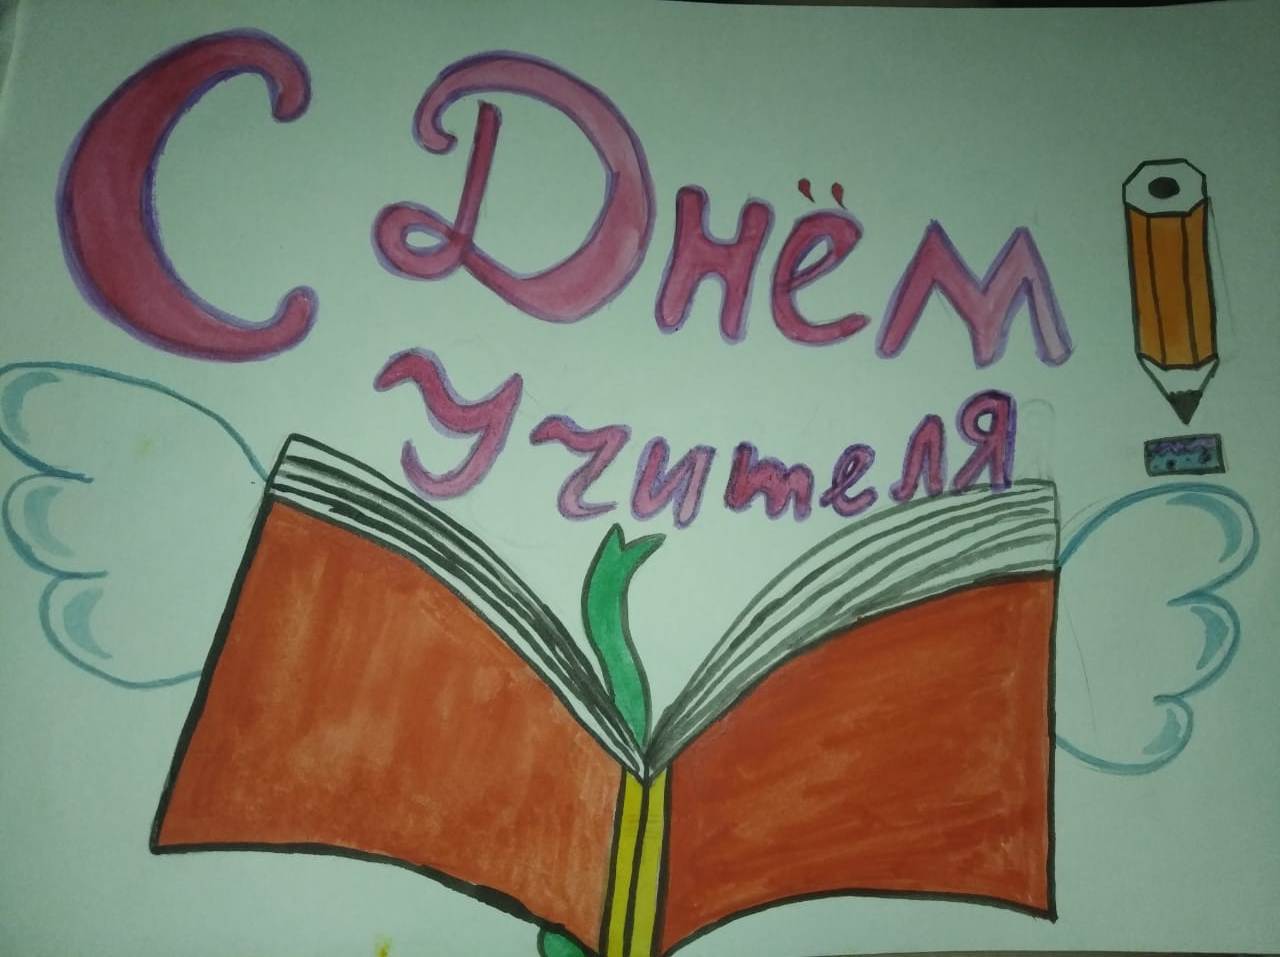 С Днём
Учителя